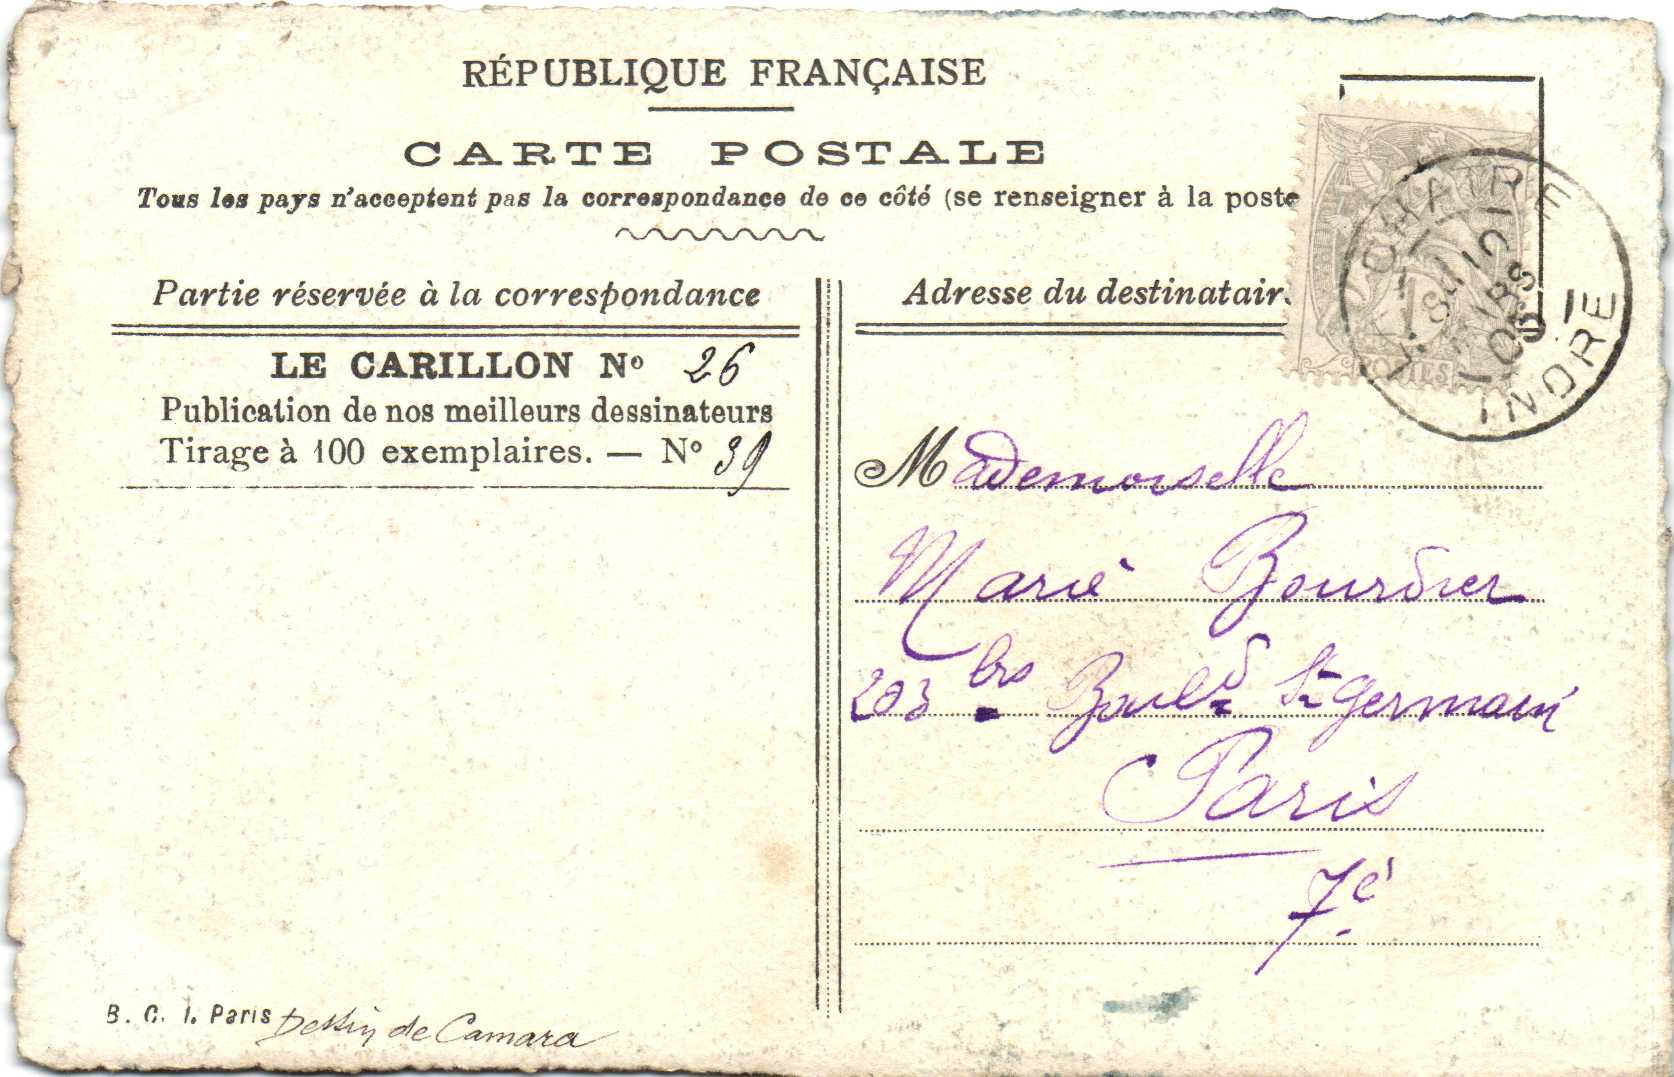 RÉPUBLIQUE FRANÇAISE
CARTE POSTALE
Tous les pays n'acceptent pas la correspondance de ce côté (se renseigner à la poste
Partie réservée à la correspondance
LE CARILLON Nº 26
Publication de nos meilleurs dessinateurs
Tirage à 100 exemplaires. — Nº 39
B. C. I. Paris Dessin de Camara
Adresse du destinatair
Mademoiselle
Marie Bourdier
203 bis Bould St Germain
Paris
7e
CHATRE
INDRE